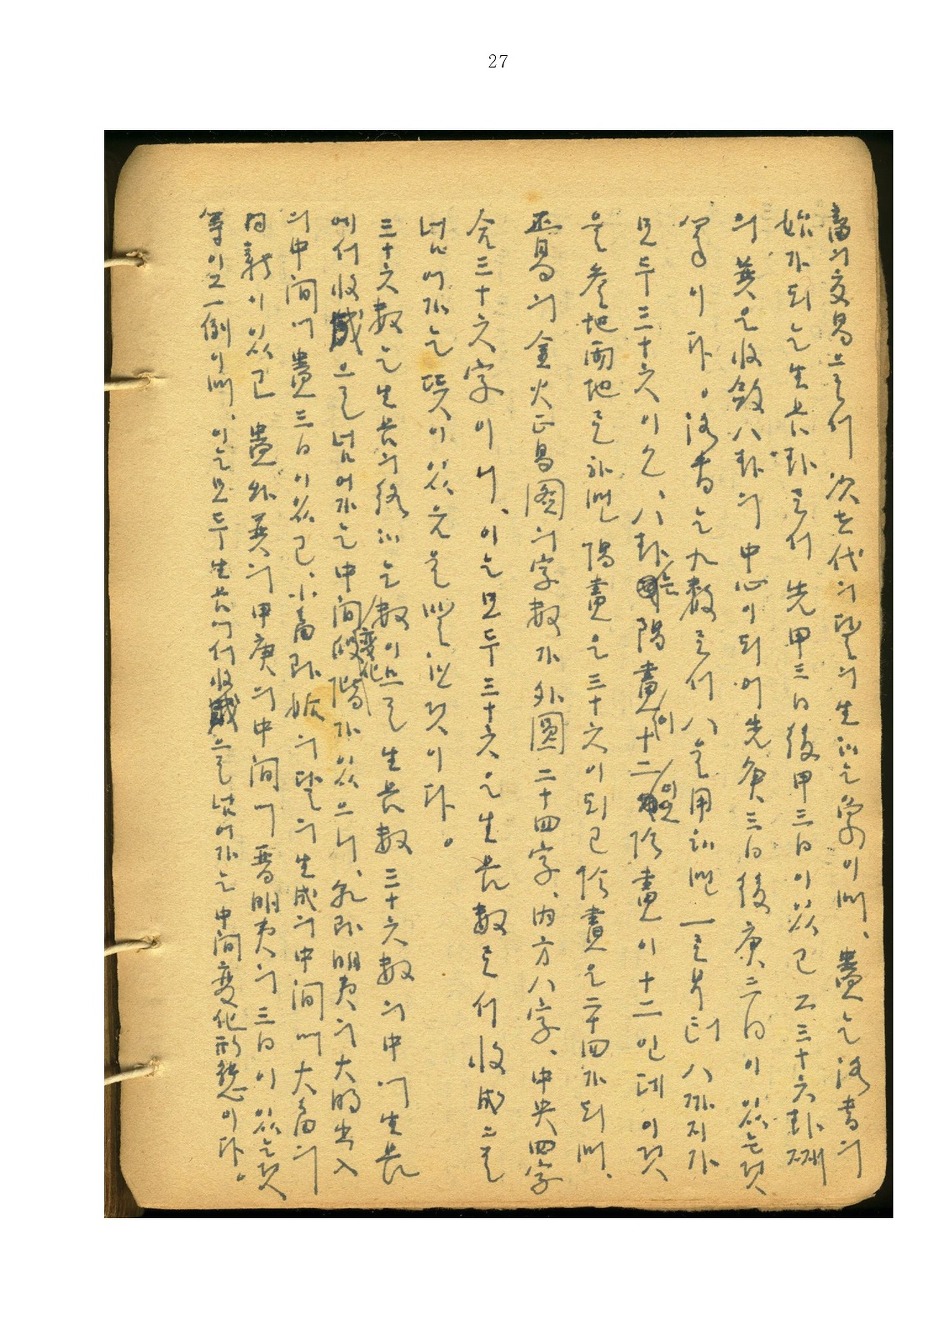 27
畜의 交易으로서 次世代의 달의 生하는 象이며、蠱는 洛書의
始가 되는 生長卦로서 先甲三日後甲三日이 있고 又三十六卦째
의 巽은 收斂八卦의 中心이 되어 先庚三日後庚三日이 있는 것
等이다。洛書는 九數로서 八을 用하면 一로부터 八까지가
모두 三十六이오、八卦는 陽畫이 十二이면 陰畫이 十二인데 이것
을 參地兩地로 하면 陽畫은 三十六이 되고 陰畫은 二十四가 되며、
正易의 金火正易圖의 字數가 外圓 二十四字、內方八字、中央四字
合三十六字이니、이는 모두 三十六은 生長數로서 收成으로
넘어가는 뜻이 있음을 말한 것이다。
三十六數는 生長의 終하는 數이므로 生長數 三十六數의 中에 生長
에서 收藏으로 넘어가는 中間變化階가 있으니、乳한 明夷의 大明出入
의 中間에 蠱三日이 있고、小畜과 姤의 달의 生成의 中間에 大畜의
日新이 있고 蠱와 巽의 甲庚의 中間에 晋明夷의 三日이 있는 것
等이 그一例이며、이는 모두 生長에서 收藏으로 넘어가는 中間變化形態이다。